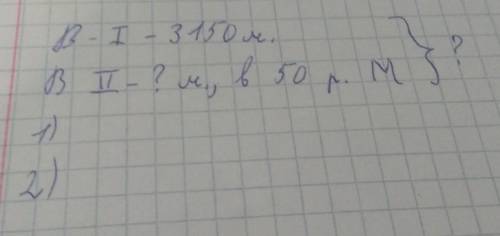 В - I - 3150 м.
В II - ? м., в 50 р. М } ?
1)
2)